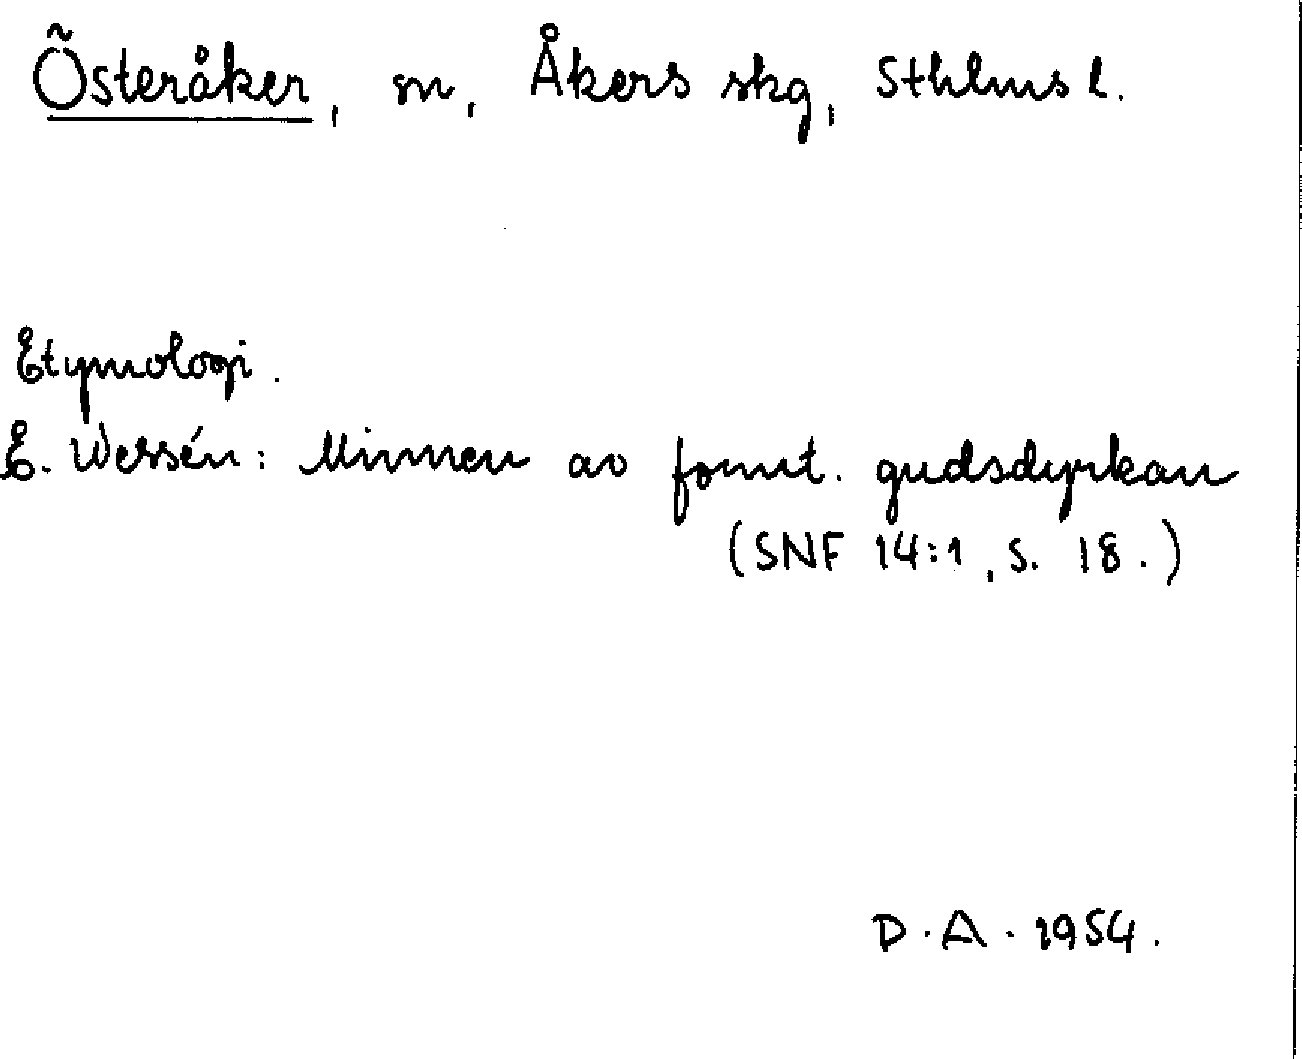 Österåker, sn, Åkers skg, Sthlms l.
Etymologi.
E. Wessén: Minnen av fornt. gudsdyrkan
(SNF 14:1, s. 18.)
D.A. 1954.